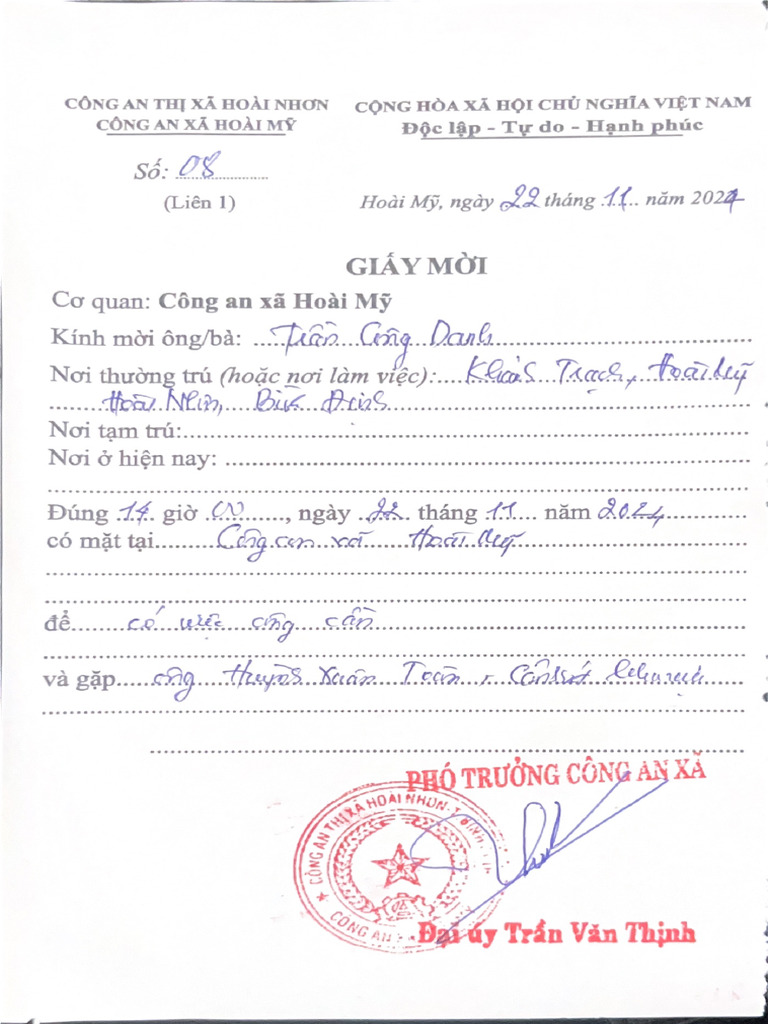 CÔNG AN THỊ XÃ HOÀI NHƠN
CÔNG AN XÃ HOÀI MỸ
CỘNG HÒA XÃ HỘI CHỦ NGHĨA VIỆT NAM
Độc lập - Tự do - Hạnh phúc
Số: 08
(Liên 1)
Hoài Mỹ, ngày 22 tháng 11 năm 2024
GIẤY MỜI
Cơ quan: Công an xã Hoài Mỹ
Kính mời ông/bà: Trần Công Danh
Nơi thường trú (hoặc nơi làm việc): Khánh Trạch, Hoài Mỹ
Hoài Nhơn, Bình Định
Nơi tạm trú:
Nơi ở hiện nay:
Đúng 14 giờ 00, ngày 22 tháng 11 năm 2024
có mặt tại Công an xã Hoài Mỹ
để có việc công cần
và gặp ông Huỳnh Xuân Toàn
PHÓ TRƯỞNG CÔNG AN XÃ
CÔNG AN THỊ XÃ HOÀI NHƠN
CÔNG AN
Đại úy Trần Văn Thịnh